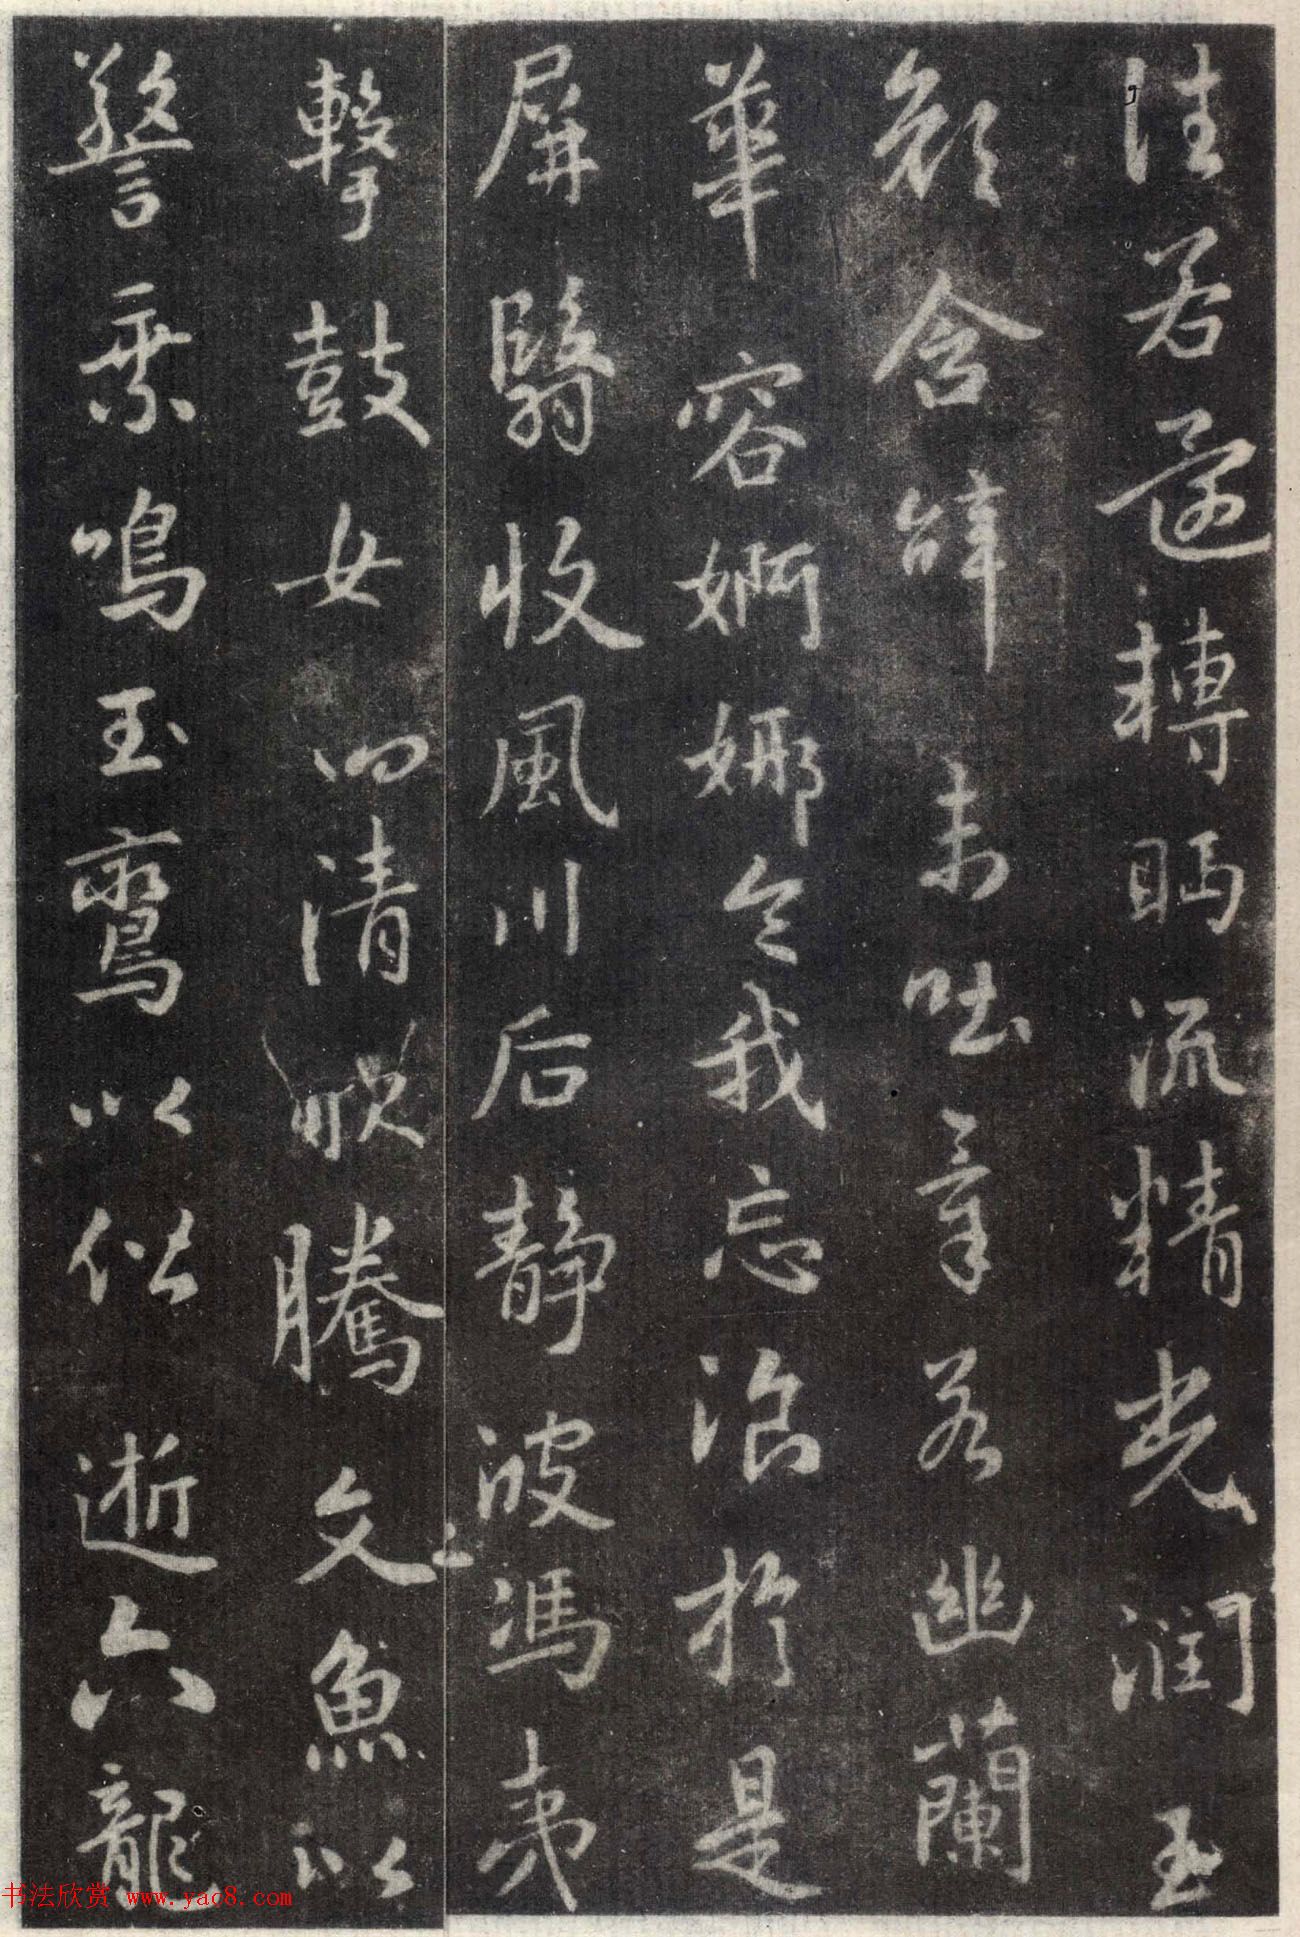 往若還轉眄流精光潤玉
顏含辭未吐氣若幽蘭
華容婀娜令我忘湌於是
屏翳收風川后靜波馮夷
擊鼓女媧清歌騰文魚以
警乘鳴玉鸞以偕逝六龍
书法欣赏 www.yac8.com